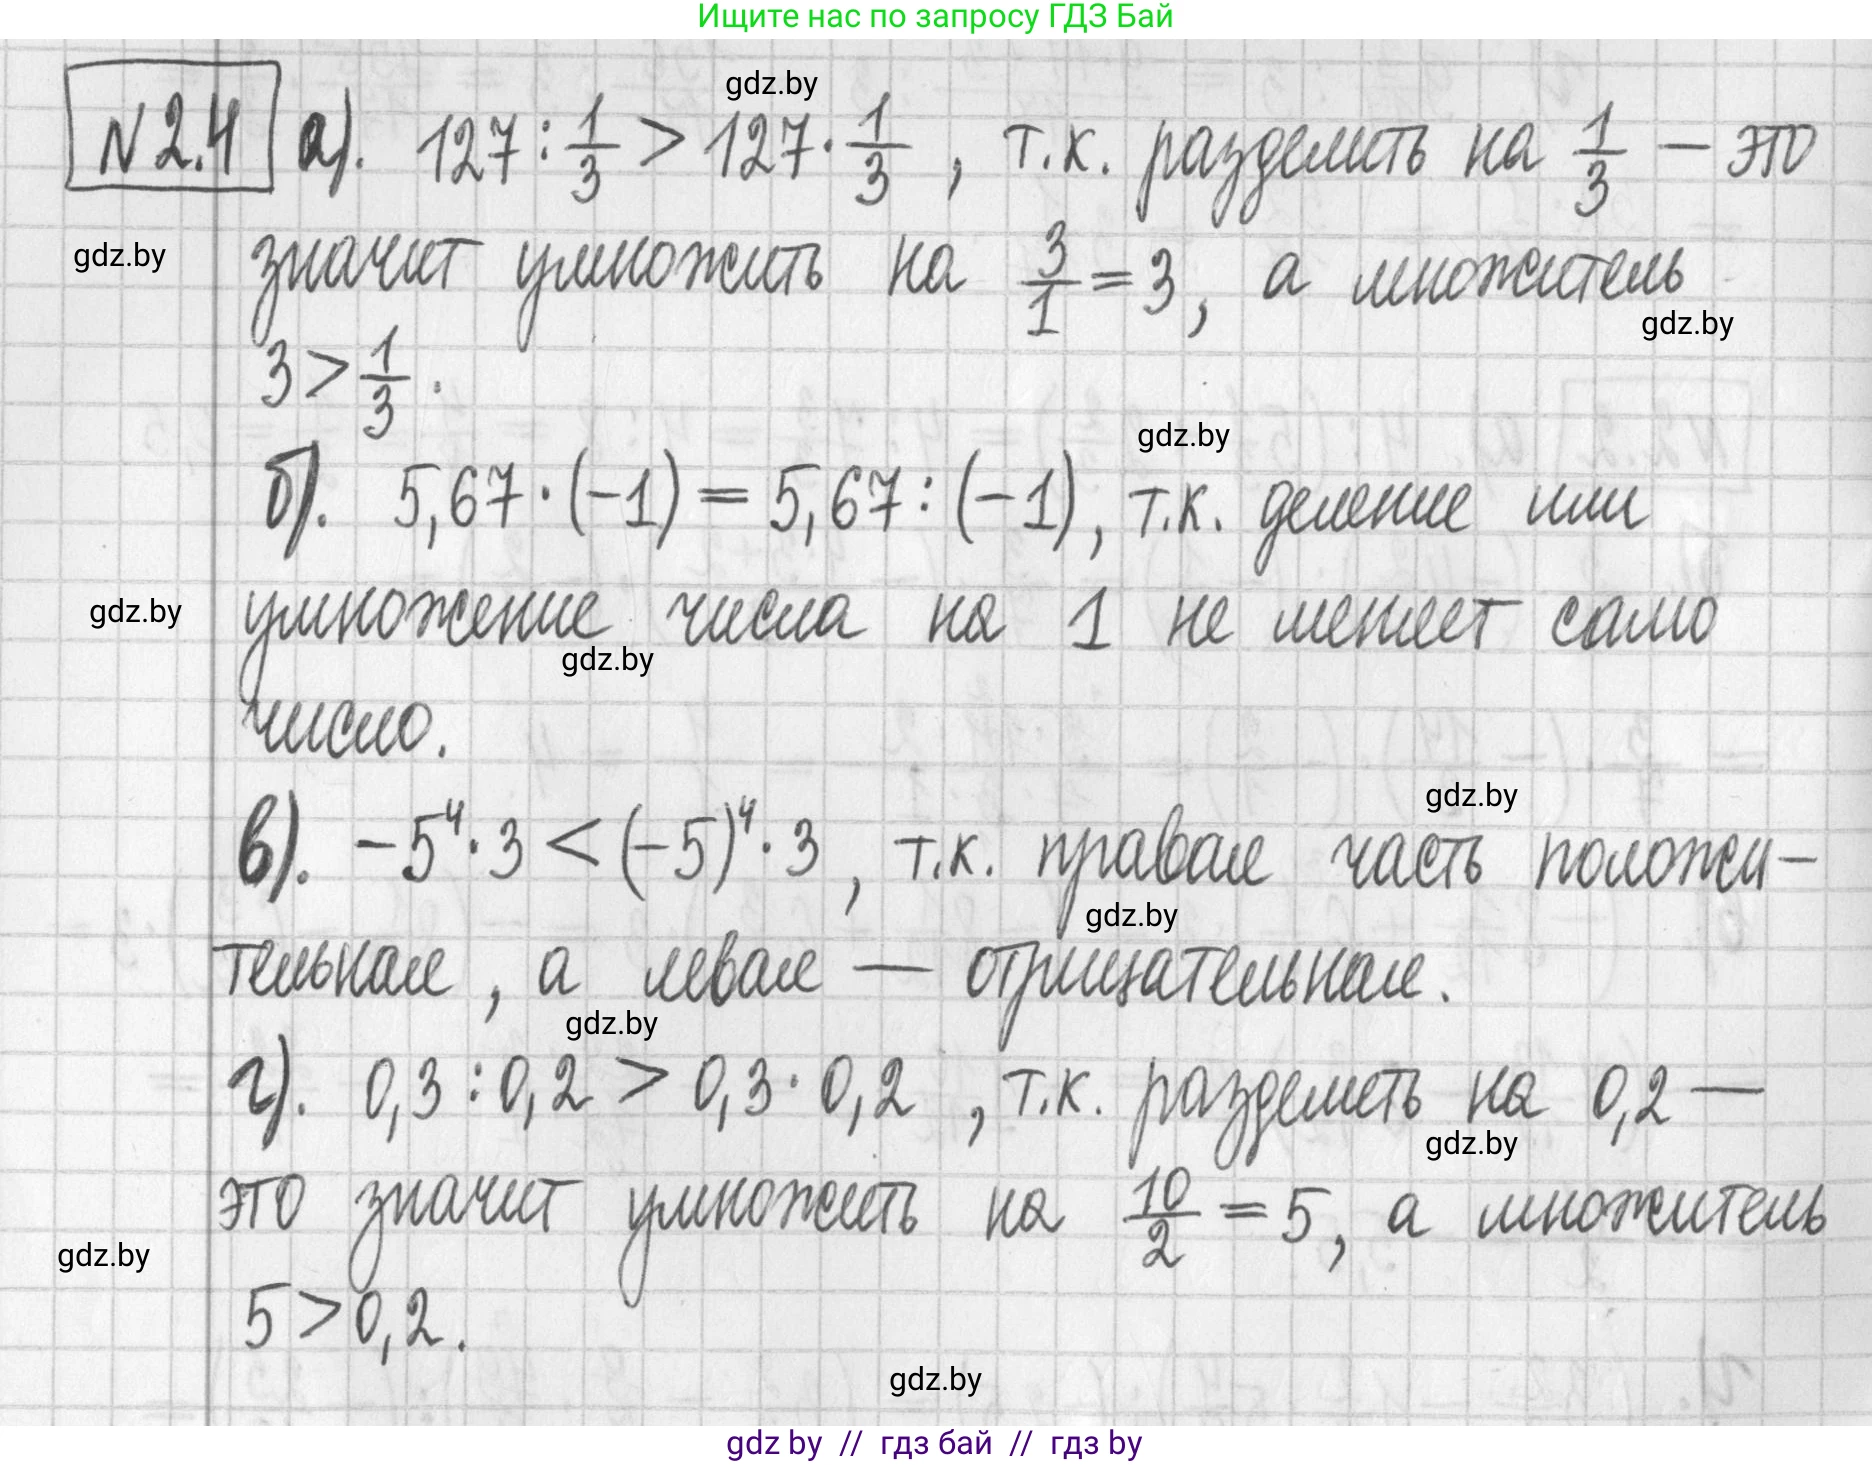 Ищите нас по запросу ГДЗ Бай
gdz.by
№2.4 а). 127 : 1/3 > 127 · 1/3 , т.к. разделить на 1/3 — это
gdz.by
значит умножить на 3/1 = 3, а множитель
gdz.by
3 > 1/3 .
gdz.by
б). 5,67 · (−1) = 5,67 : (−1), т.к. деление или
gdz.by
умножение числа на 1 не меняет само
gdz.by
число.
gdz.by
в). −5⁴ · 3 < (−5)⁴ · 3 , т.к. правая часть положи-
gdz.by
тельная , а левая — отрицательная .
gdz.by
г). 0,3 : 0,2 > 0,3 · 0,2 , т.к. разделить на 0,2 —
gdz.by
это значит умножить на 10/2 = 5, а множитель
gdz.by
5 > 0,2 .
gdz.by
gdz by // гдз бай // гдз by